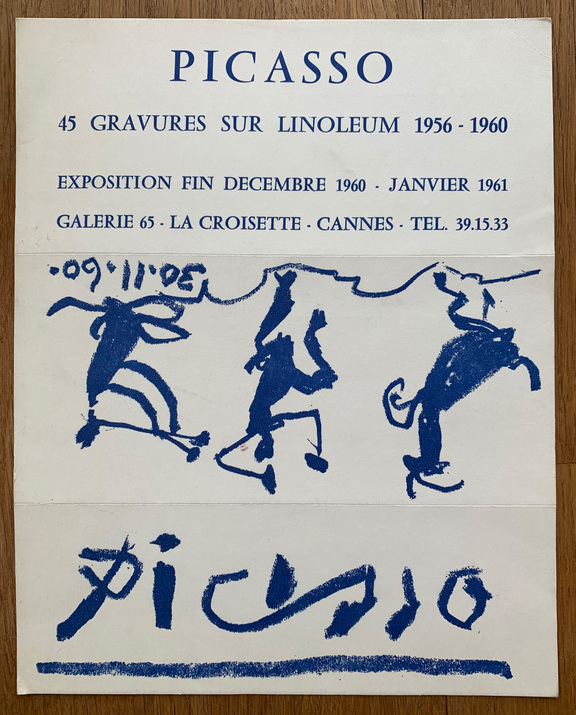 PICASSO
45 GRAVURES SUR LINOLEUM 1956 - 1960
EXPOSITION FIN DECEMBRE 1960 · JANVIER 1961
GALERIE 65 · LA CROISETTE · CANNES · TEL. 39.15.33
30.11.60.
Picasso